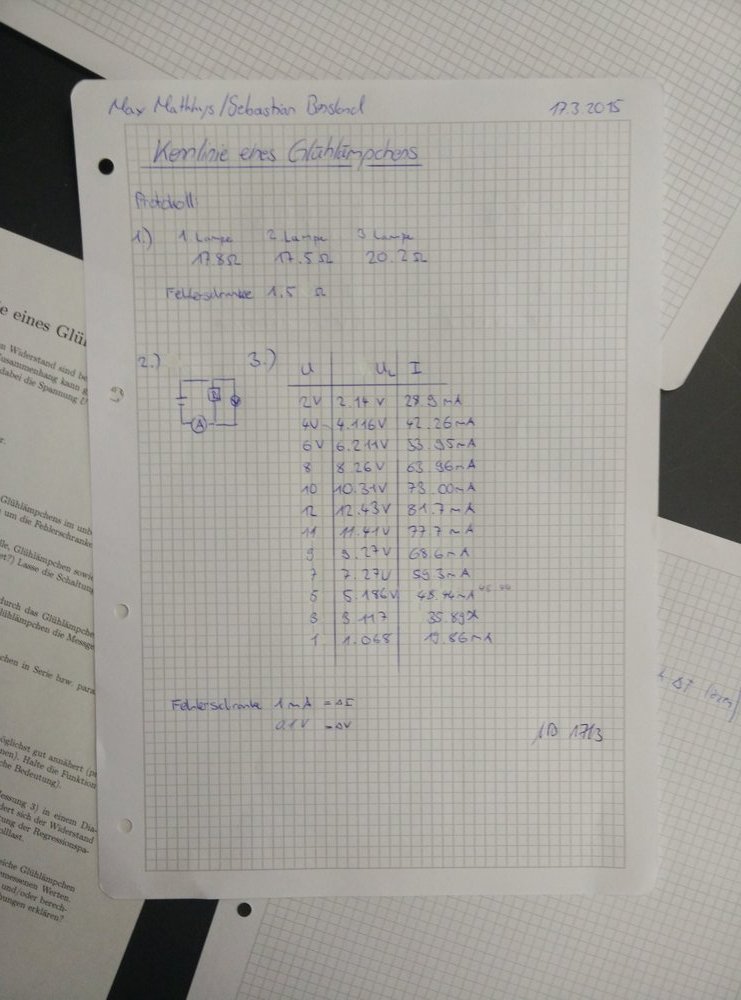 Max Mathys/Sebastian 17.3.2015
Kennlinie eines Glühlämpchens
Protokoll:
1.) 1. Lampe 2. Lampe 3. Lampe
17.8Ω 17.5Ω 20.2Ω
Fehlerschranke 1.5 Ω
2.) 3.) U U_L I
2V 2.14 V 28.9 mA
4V 4.116V 42.26mA
A 6V 6.211V 53.95mA
8 8.26V 63.96mA
10 10.31V 73.00mA
12 12.43V 81.7mA
11 11.41V 77.7mA
9 9.27V 68.6mA
7 7.27V 59.3mA
5 5.186V mA
3 3.117 35.89
1 1.068 19.86mA
Fehlerschranke 1mA = ΔI
0.1V = ΔV
17/3
e eines Glü
n Widerstand sind be
Zusammenhang kann g
dabei die Spannung U
r.
Glühlämpchens im unb
um die Fehlerschranke
lle, Glühlämpchen sowie
et?) Lasse die Schaltun
durch das Glühlämpche
lühlämpchen die Messge
chen in Serie bzw. para
öglichst gut annähert (p
nen). Halte die Funktion
che Bedeutung).
essung 3) in einem Dia-
dert sich der Widerstand
ung der Regressionspa-
lllast.
eiche Glühlämpchen
emessenen Werten.
und/oder berech-
bungen erklären?